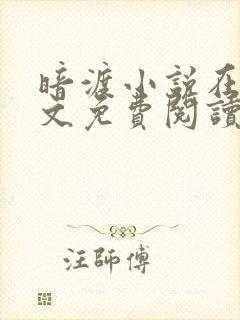 暗渡小说在
文免費閱讀
汪師傅